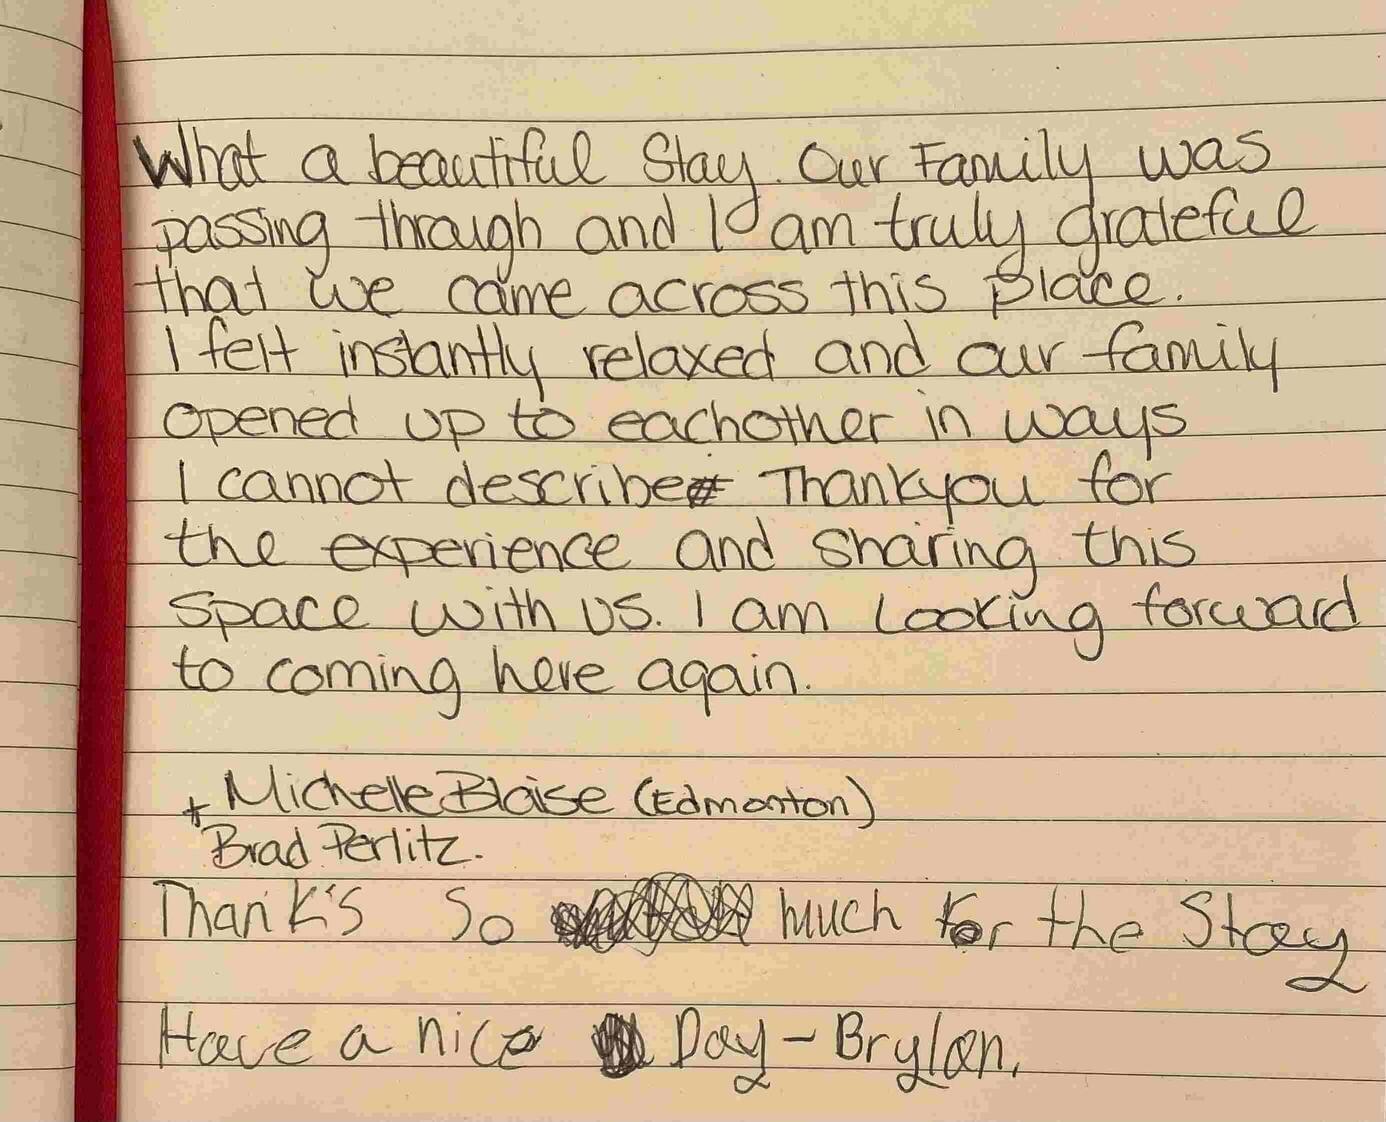 What a beautiful Stay. Our Family was
passing through and I am truly grateful
that we came across this place.
I felt instantly relaxed and our family
opened up to eachother in ways
I cannot describe Thankyou for
the experience and sharing this
space with us. I am Looking forward
to coming here again.
Michelle Blaise (Edmonton)
+ Brad Perlitz.
Thank's So much for the Stay
Have a nice Day - Brylan.